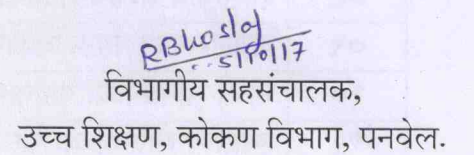 RBhosle
5/10/17
विभागीय सहसंचालक,
उच्च शिक्षण, कोकण विभाग, पनवेल.